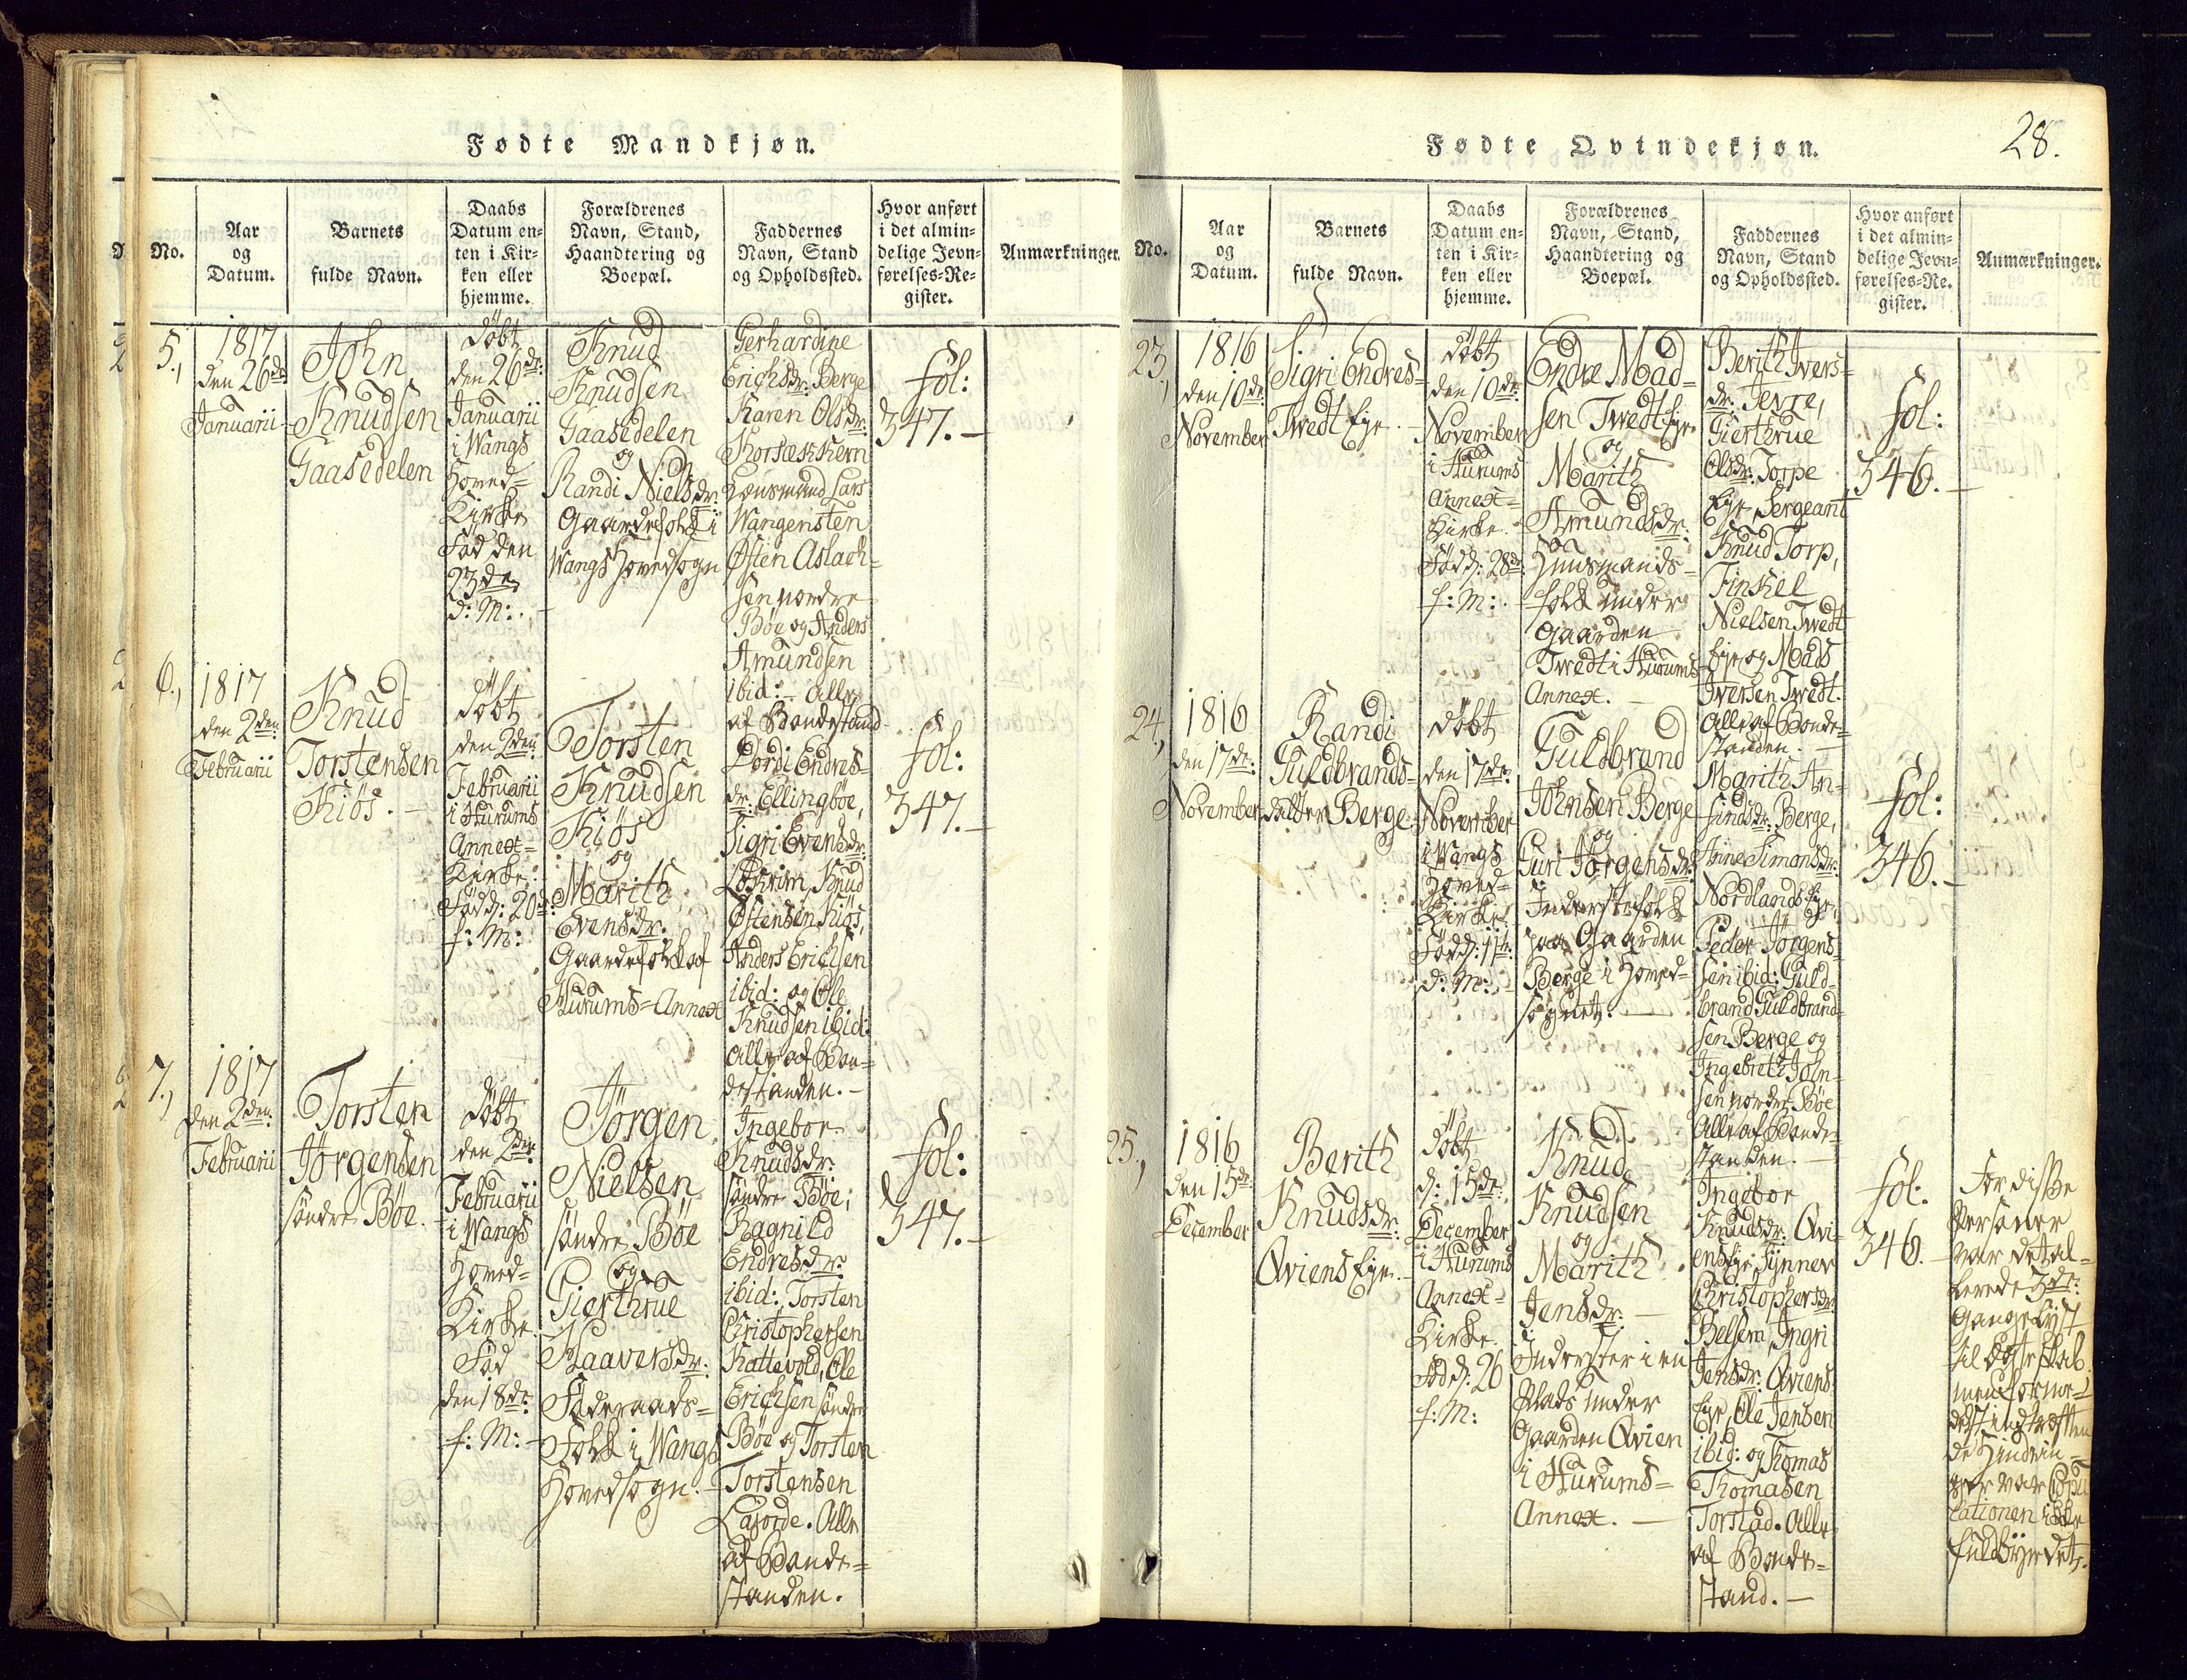 Fødte Mandkjøn.
No.
Aar
og
Datum.
Barnets
fulde Navn.
Daabs
Datum en-
ten i Kir-
ken eller
hjemme.
Forældrenes
Navn, Stand,
Haandtering og
Boepæl.
Faddernes
Navn, Stand
og Opholdssted.
Hvor anført
i det almin-
delige Jevn-
førelses-Re-
gister.
Anmærkninger.
5.,
1817
den 26de
Januarii
John
Knudsen
Gaasedelen
døbt
den 26de:
Januarii
i Wangs
Hoved=
Kirke
Fød den
23de
d: M: . -
Knud
Knudsen
Gaasedelen
og
Randi Nielsdr.
Gaardefolk i
Wangs Hovedsogn
Gerhardine
Erichsdr: Berge
Karen Olsdr:
Lars
Wangensten
Østen Aslach=
sen nordre
Böe og Anders
Amundsen
ibid: - Alle
af Bondestand
fol:
347. -
6.,
1817
den 2den:
Februarii
Knud
Torstensen
Kiös. -
døbt
den 2den:
Februarii
i Hurums
Annex=
Kirke.
Fød d: 20de:
f: M:
Torsten
Knudsen
Kiös
og
Marith
Evensdr:
Gaardefolk af
Hurums=Annex
Dordi Endres=
dr: Ellingböe,
Sigri Evensdr:
Løkrim, Knud
Østensen Kiös,
Anders Erichsen
ibid: og Ole
Knudsen ibid:
Alle af Bon=
destanden. -
fol:
347. -
7.,
1817
den 2den:
Februarii
Torsten
Jörgensen
søndre Böe. -
døbt
den 2den:
Februarii
i Wangs
Hoved=
Kirke.
Fød
den 18de:
f: M: -
Jörgen
Nielsen
søndre Böe
og
Gierthrue
Haaversdr:
Føderaads=
Folk i Wangs
Hovedsogn. -
Ingebor
Knudsdr:
søndre Böe,
Ragnild
Endresdr:
ibid: Torsten
Christophersen
Kattevold, Ole
Erichsen søndre
Böe og Torsten
Torstensen
Lajorde. Alle
af Bonde=
standen.
fol:
347. -
Fødte Qvindekjøn.
28.
No.
Aar
og
Datum.
Barnets
fulde Navn.
Daabs
Datum en-
ten i Kir-
ken eller
hjemme.
Forældrenes
Navn, Stand,
Haandtering og
Boepæl.
Faddernes
Navn, Stand
og Opholdssted.
Hvor anført
i det almin-
delige Jevn-
førelses-Re-
gister.
Anmærkninger.
23.,
1816
den 10de:
November
Sigri Endres=
Twedt Eye. -
døbt
den 10de:
November
i Hurums
Annex=
Kirke. -
Fød d: 28de:
f: M: . -
Endre Mad=
sen Twedt Eye
og
Marith
Amundsdr:
Huusmands=
folk under
Gaarden
Twedt i Hurums
Annex. -
Berith Ivers=
dr: Jevre,
Gierthrue
Olsdr: Torpe
Eye, Sergeant
Knud Torp,
Finkel
Nielsen Twedt
Eye og Mads
Iversen Twedt.
Alle af Bonde=
standen. -
fol:
346. -
24.,
1816
den 17de:
November
Randi
Guldbrands=
datter Berge
døbt
den 17de:
November
i Wangs
Hoved=
Kirke.
Fød d: 11te:
d: M: -
Guldbrand
Johnsen Berge
og
Guri Jörgensdr:
Inderstefolk
paa Gaarden
Berge i Hoved=
sognet. -
Marith An=
findsdr: Berge,
Anne Simonsdr:
Nordlands Eye,
Peder Jörgens=
sen ibid: Guld=
brand Guldbrand=
sen Berge og
Ingebreth John=
sen nordre Böe
Alle af Bonde=
standen. -
fol:
346. -
25.,
1816
den 15de
December
Berith
Knudsdr:
Qviens Eye. -
døbt
d: 15de:
December
i Hurums
Annex=
Kirke.
Fød d: 26
f: M:
Knud
Knudsen
og
Marith
Jensdr: -
Inderster i en
Plads under
Gaarden Qvien
i Hurums=
Annex. -
Ingebor
Knudsdr: Qvi=
ens Eye, Synnev
Christophersdr:
Belsem, Ingri
Jensdr: Qviens
Eye, Ole Jensen
ibid: og Thomas
Thomasen
Torstad. Alle
af Bonde=
stand. -
fol:
346. -
For disse
Personer
var det al=
lerede 3de:
Gange lyst
til Ægteskab
men formedelst indtrufne
de Hindrin=
ger var Copu
lationen ikke
fuldbyrdet.